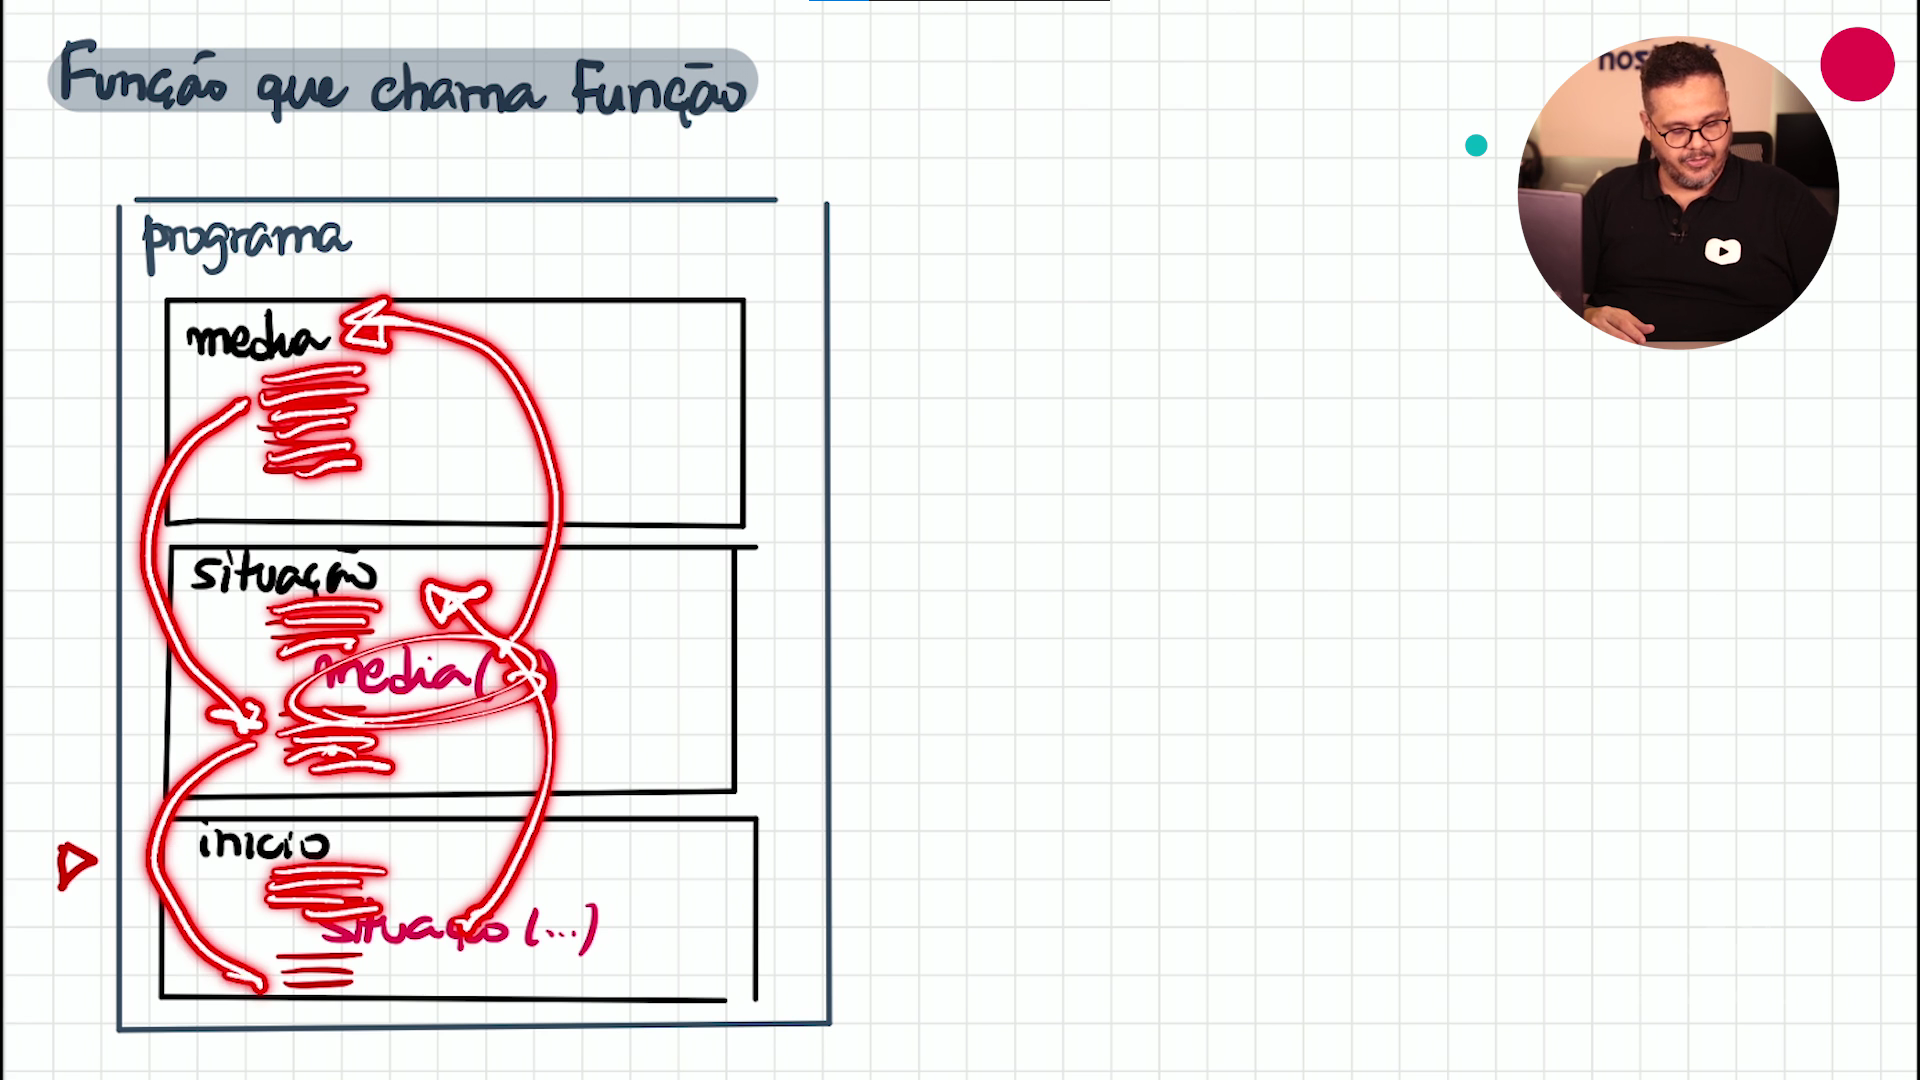 Função que chama Função
programa
media
situação
media(
inicio
situação (...)